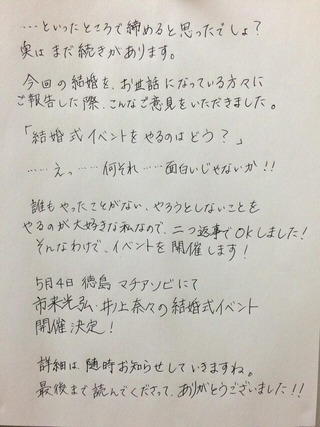 …といったところで締めると思ったでしょ？
実はまだ続きがあります。
今回の結婚を、お世話になっている方々に
ご報告した際、こんなご意見をいただきました。
「結婚式イベントをやるのはどう？」
……えっ……何それ……面白いじゃないか!!
誰もやったことがない、やろうとしないことを
やるのが大好きな私なので、二つ返事でOKしました！
そんなわけで、イベントを開催します！
5月4日 徳島 マチアソビにて
市来光弘・井ノ上奈々の結婚式イベント
開催決定！
詳細は、随時お知らせしていきますね。
最後まで読んでくださって、ありがとうございました!!